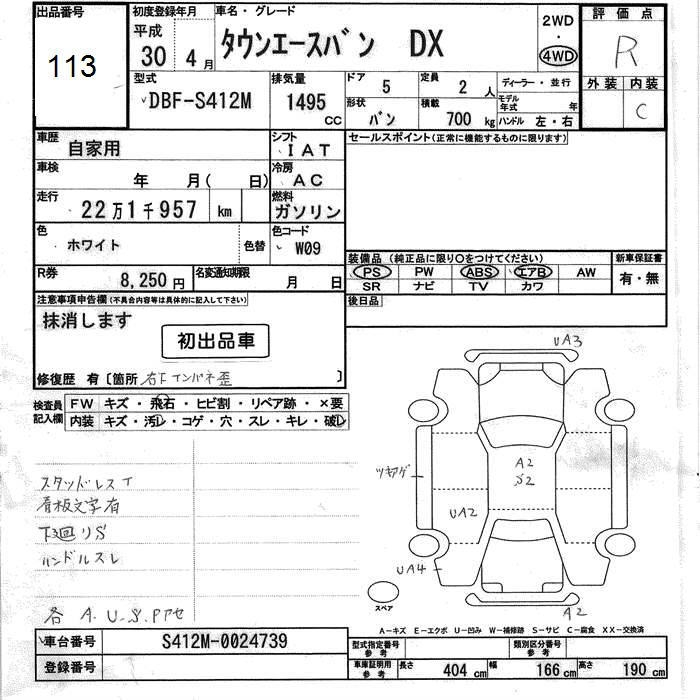 出品番号
113
初度登録年月
平成
30年 4月
車名・グレード
タウンエースバン DX
2WD
・
4WD
評価点
R
外装 内装
C
型式
DBF-S412M
排気量
1495 CC
ドア 5
定員 2 人
ディーラー・並行
形状 バン
積載 700 kg
モデル年式 年
ハンドル 左・右
車歴 自家用
シフト IAT
セールスポイント(正常に機能するものに限ります)
車検 年 月( 日)
冷房 AC
走行 22万1千957 km
燃料 ガソリン
色 ホワイト 色替
色コード W09
装備品(純正品に限り○をつけてください)
新車保証書
PS PW ABS エアB AW
有・無
SR ナビ TV カワ
R券 8,250円
名変通知期限 月 日
後日品
注意事項申告欄(不具合内容等は具体的に記入して下さい)
抹消します
初出品車
修復歴 有〔箇所 右Fインパネ歪 〕
検査員記入欄
FW キズ・飛石・ヒビ割・リペア跡・×要
内装 キズ・汚レ・コゲ・穴・スレ・キレ・破レ
UA3
ツヤアゲ
A2
S2
UA2
UA4
A2
スタッドレスT
看板文字有
下廻りS
ハンドルスレ
各 A.U.S.Pアセ
スペア
A-キズ E-エクボ U-凹み W-補修跡 S-サビ C-腐食 XX-交換済
車台番号 S412M-0024739
型式指定番号 参考
類別区分番号 参考
登録番号
車庫証明用 参考
長さ 404 cm 幅 166 cm 高さ 190 cm